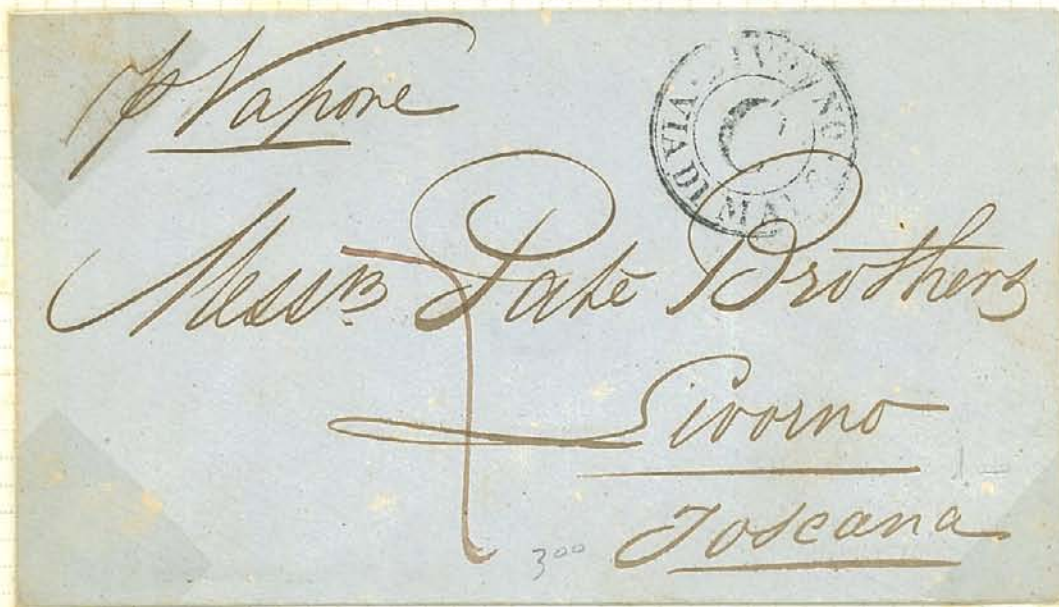 p Vapore
LIVORNO
VIA DI MARE
Messrs Pate Brothers
Livorno
Toscana
300
1 –